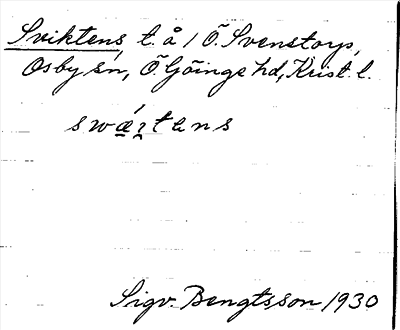 Sviktens, t. å 1 Ö. Svenstorp,
Osby sn, Ö. Göinge hd, Krist. l.
swǽrtens
Sigv. Bengtsson 1930